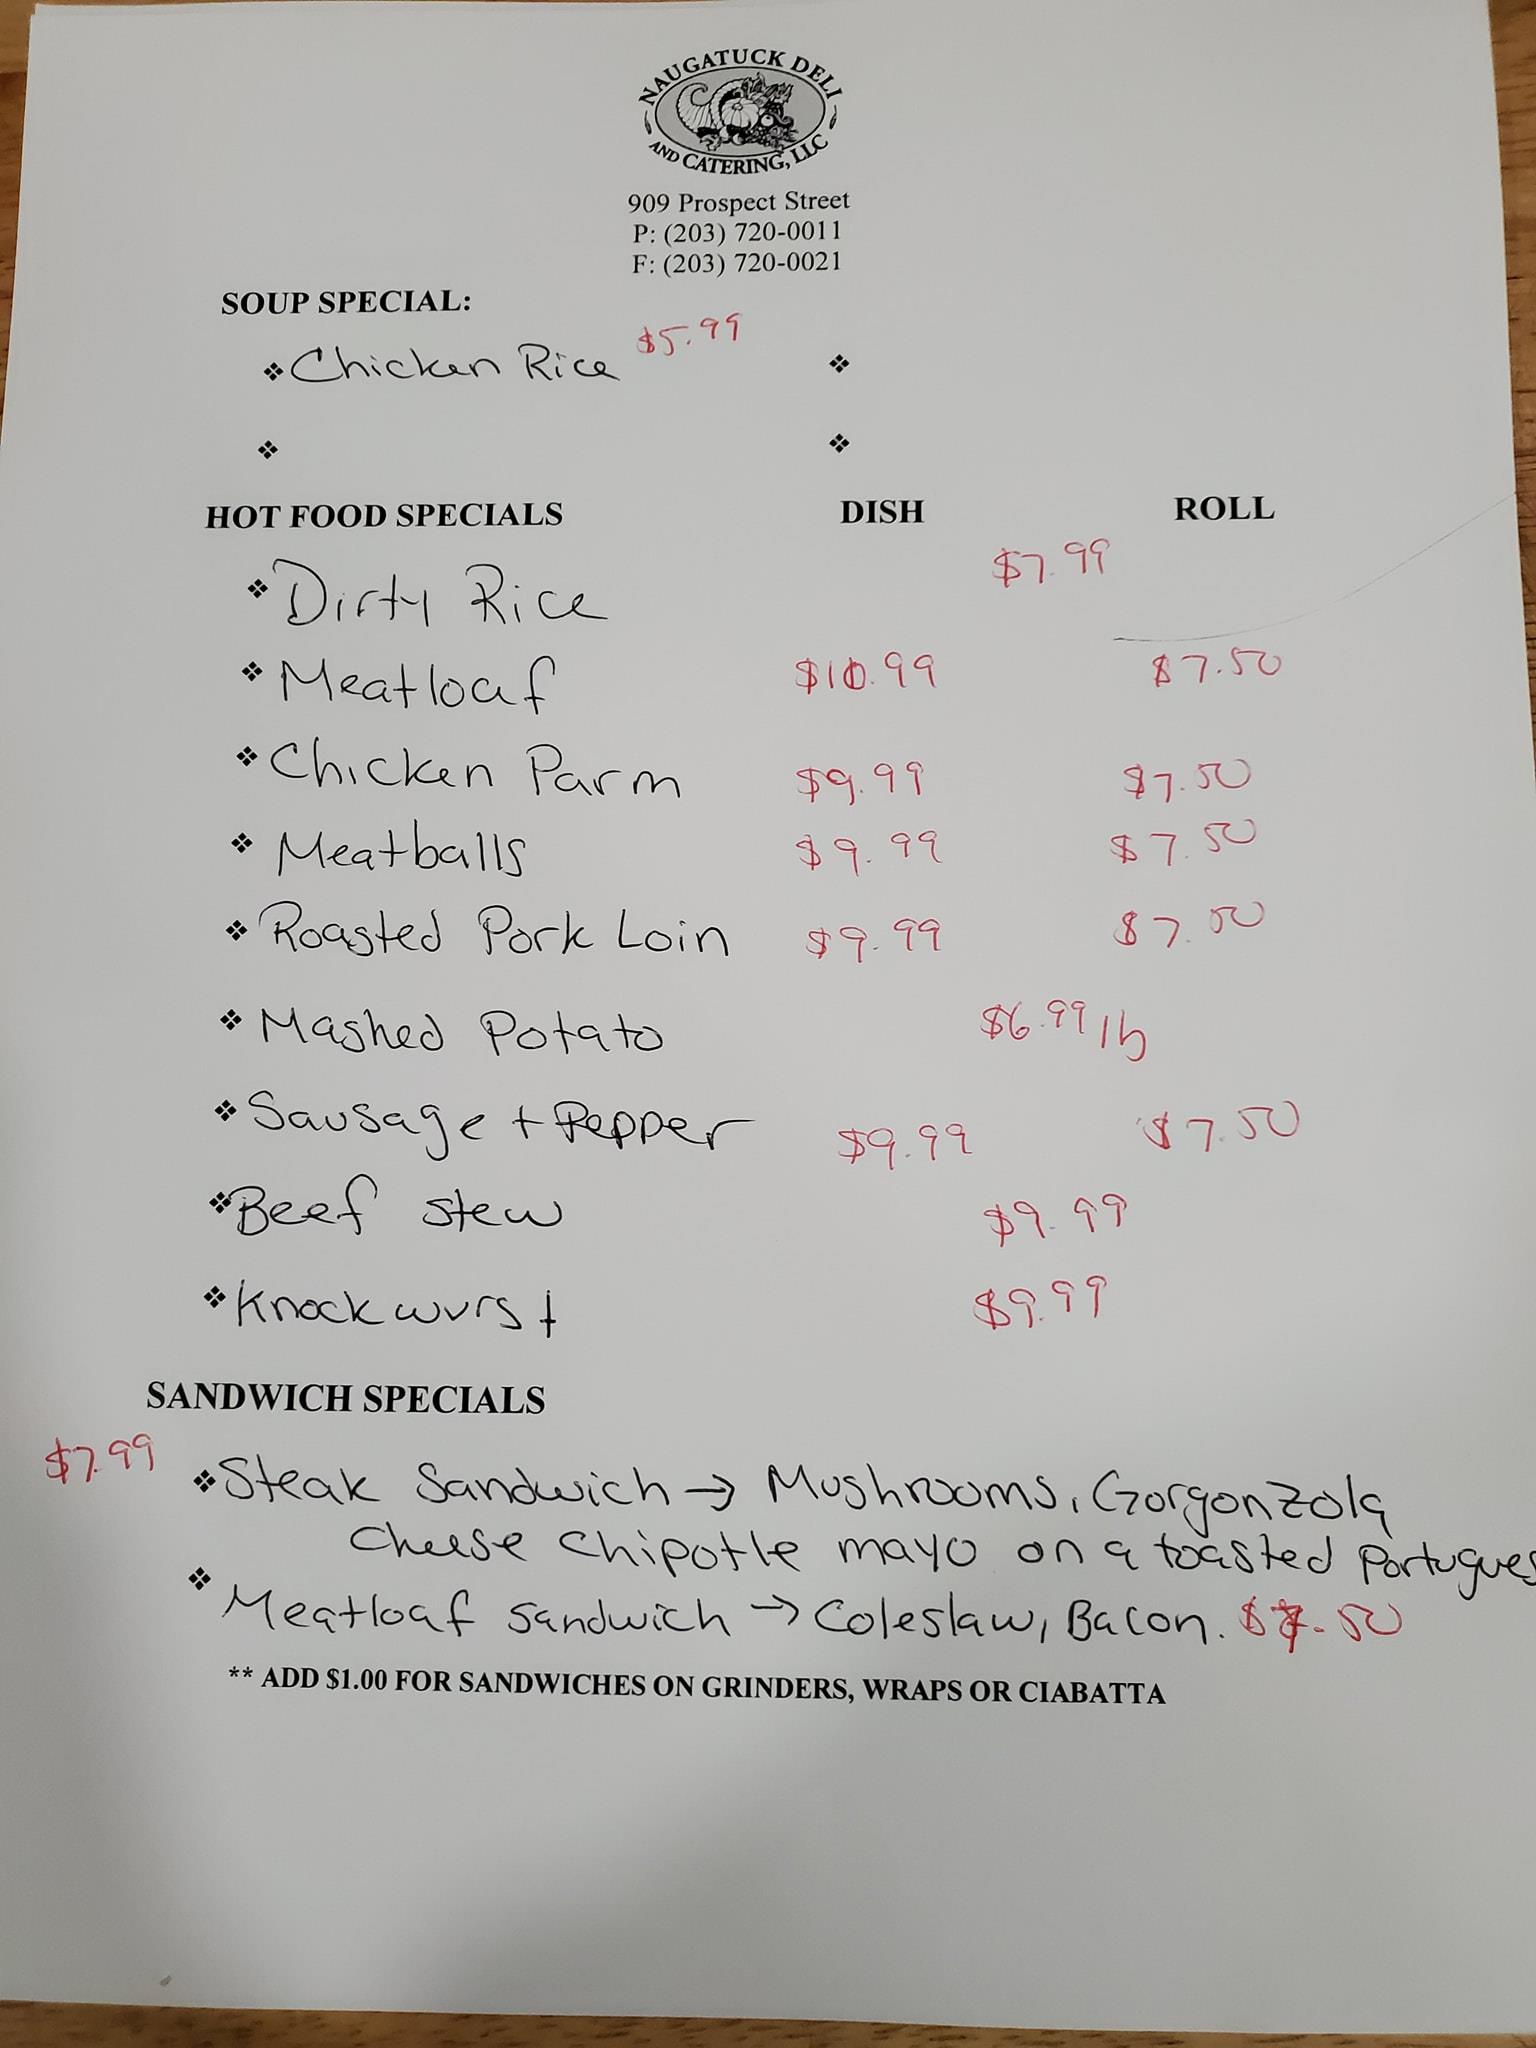 NAUGATUCK DELI
AND CATERING, LLC
909 Prospect Street
P: (203) 720-0011
F: (203) 720-0021
SOUP SPECIAL:
Chicken Rice $5.99
HOT FOOD SPECIALS DISH ROLL
Dirty Rice $7.99
Meatloaf $10.99 $7.50
Chicken Parm $9.99 $7.50
Meatballs $9.99 $7.50
Roasted Pork Loin $9.99 $7.50
Mashed Potato $6.99 lb
Sausage + Pepper $9.99 $7.50
Beef stew $9.99
Knockwurst $9.99
SANDWICH SPECIALS
$7.99 Steak Sandwich → Mushrooms, Gorgonzola
Cheese Chipotle mayo on a toasted Portugues
Meatloaf sandwich → Coleslaw, Bacon. $7.50
** ADD $1.00 FOR SANDWICHES ON GRINDERS, WRAPS OR CIABATTA